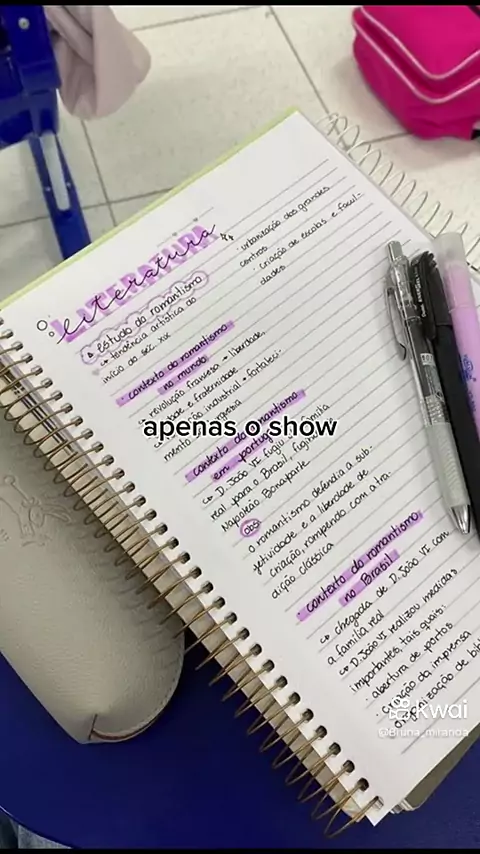 LITERATURA
literatura
estudo do romantismo
↳ tendência artística do
início do séc. XIX
• contexto do romantismo
no mundo
revolução francesa • liberdade,
e fraternidade
industrial • fortaleci-
mento
• contexto do romantismo
em
↳ D. João VI fugiu
real para o Brasil,
Napoleão Bonaparte
obs
o romantismo defendia a sub-
jetividade e a liberdade de
criação, rompendo com a tra-
dição clássica
• contexto do romantismo
no Brasil
↳ chegada de D. João VI com
a família real
↳ D. João VI realizou medidas
importantes, tais quais:
• abertura de portos
• criação da imprensa
• urbanização dos grandes
centros
• criação de escolas e facul-
dades
apenas o show
kwai
@Bruna_miranda